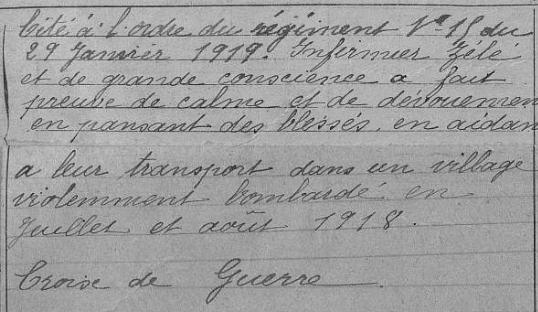 Cité à l'ordre du régiment N° 15 du
29 Janvier 1919. Infirmier Zélé
et de grande conscience a fait
preuve de calme et de dévouemen
en pansant des blessés, en aidan
a leur transport dans un village
violemment bombardé en
Juillet et août 1918.
Croise de Guerre